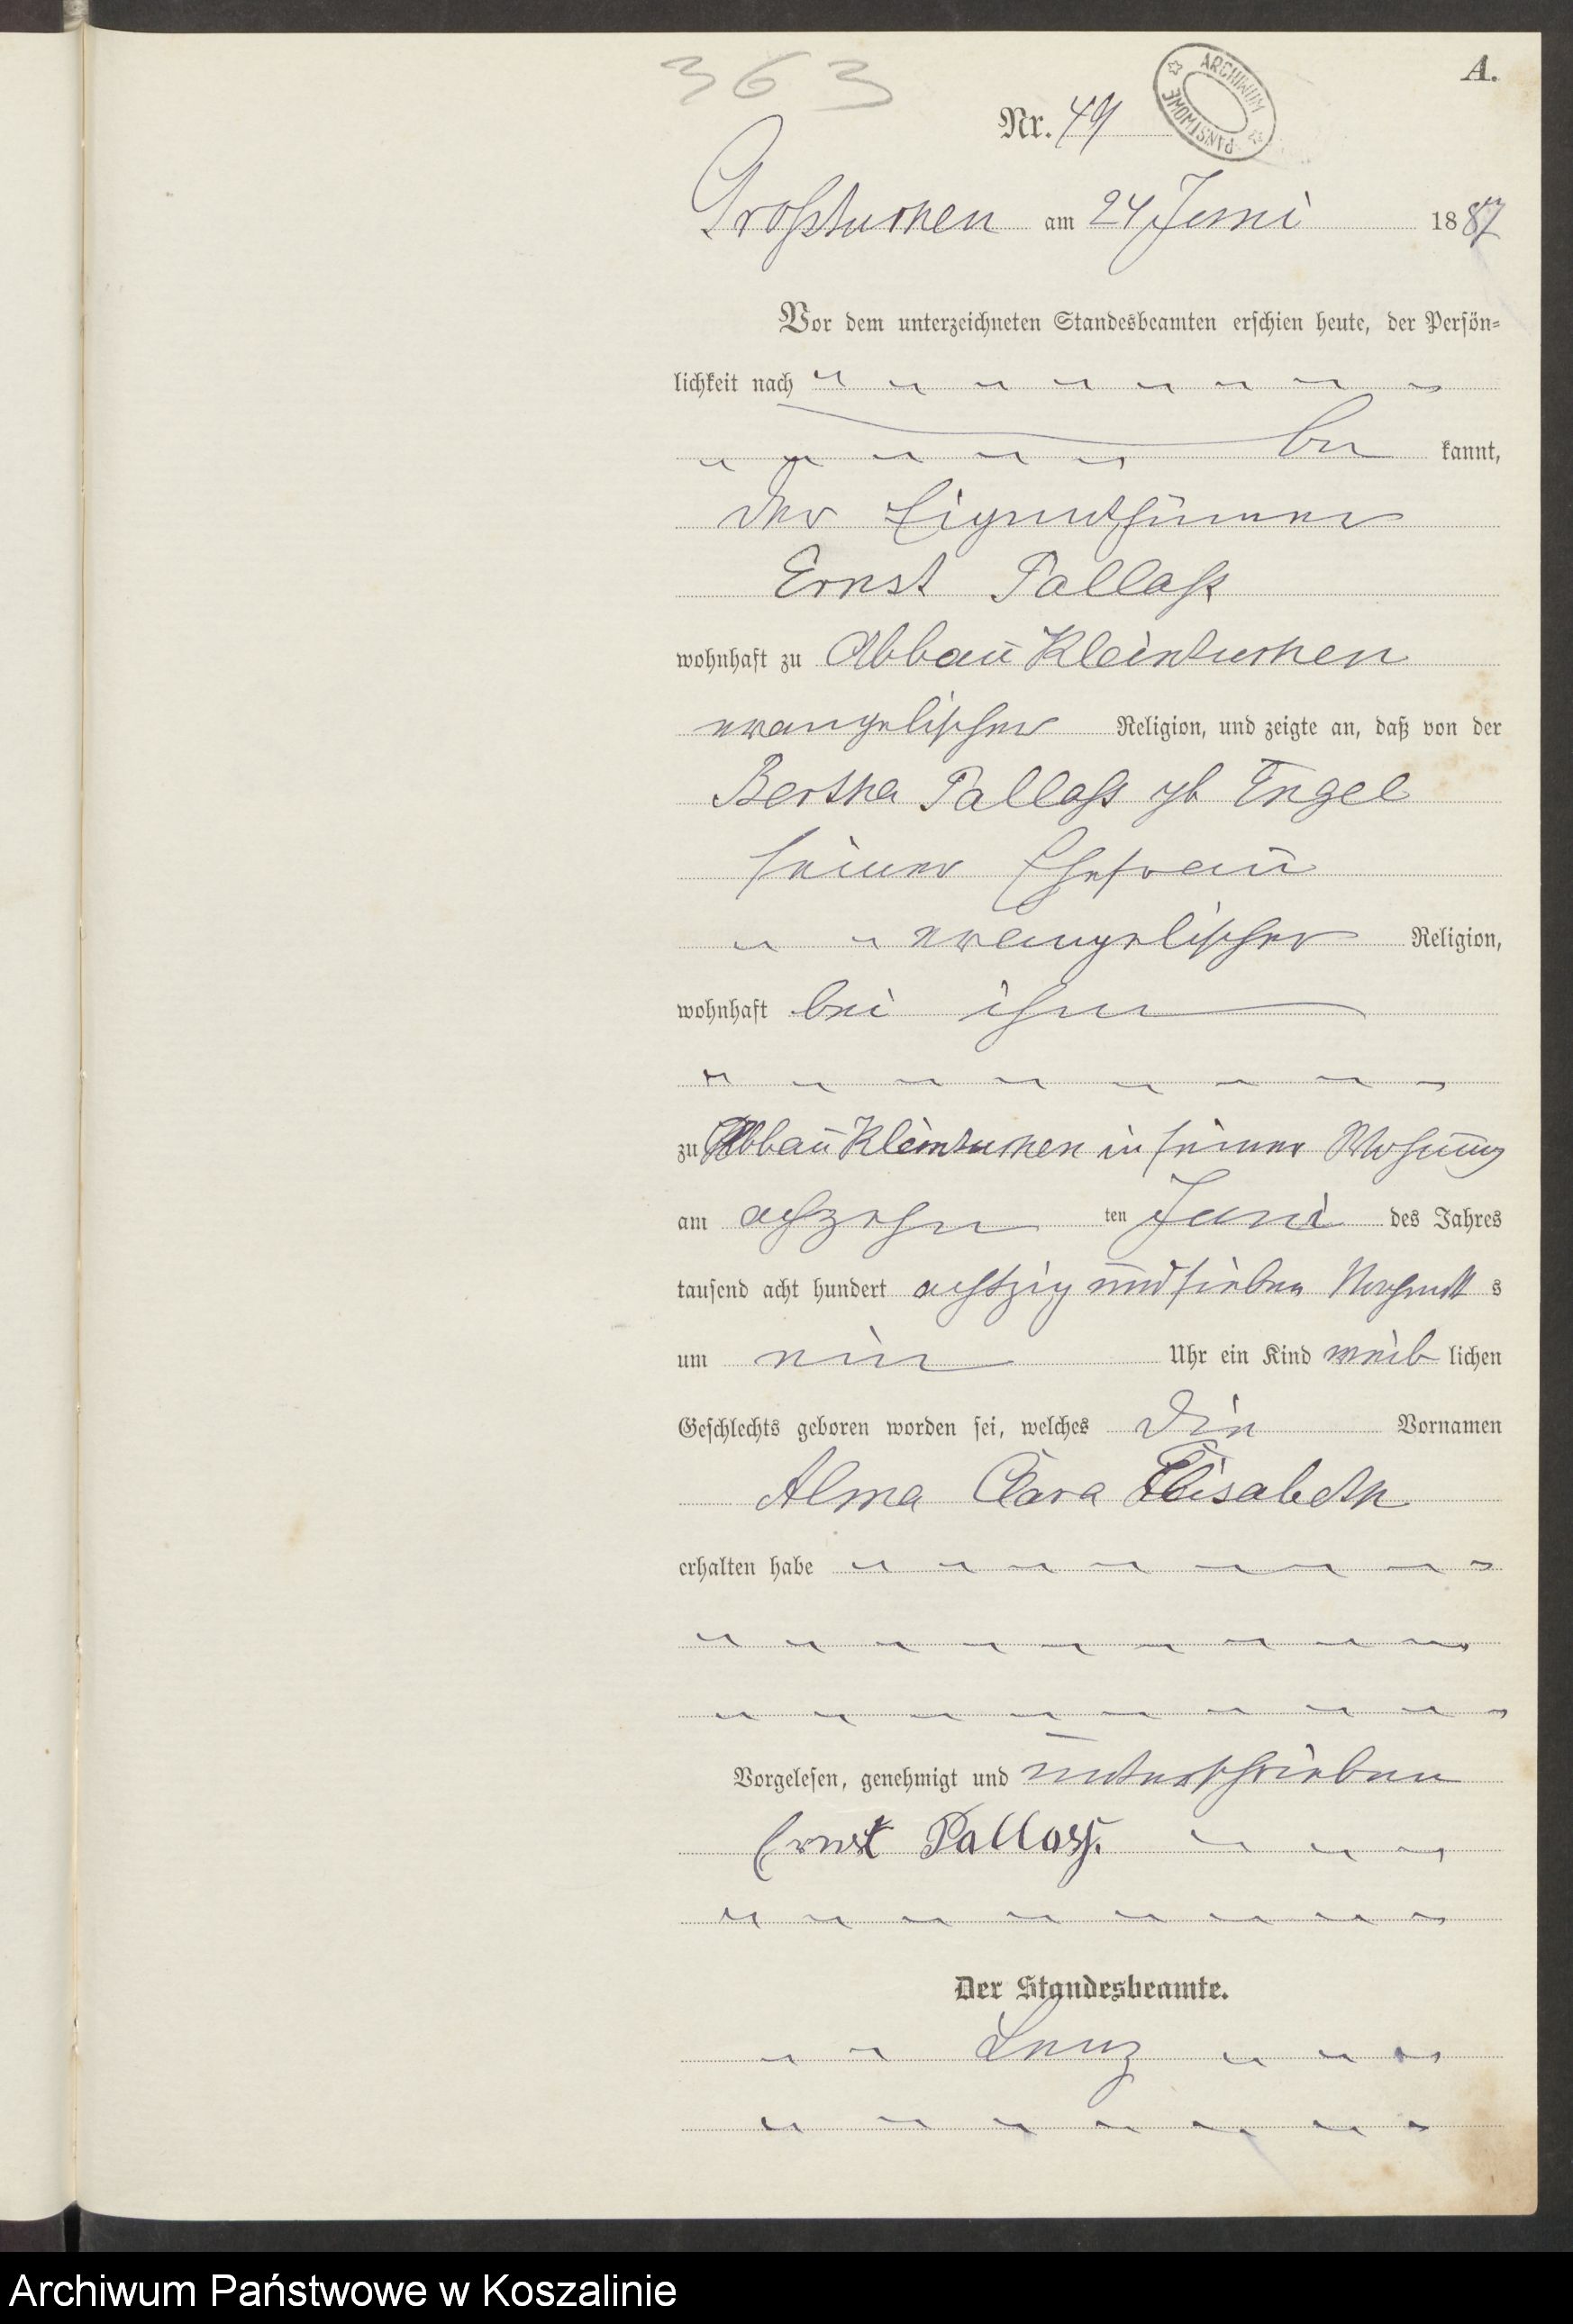 363
A.
ARCHIWUM PAŃSTWOWE
Nr. 49
Großtuchen am 24 Juni 1887
Vor dem unterzeichneten Standesbeamten erschien heute, der Persön-
lichkeit nach
be kannt,
der Eigenthümer
Ernst Pallaß
wohnhaft zu Abbau Kleintuchen
evangelischer Religion, und zeigte an, daß von der
Bertha Pallaß gb Engel
seiner Ehefrau
evangelischer Religion,
wohnhaft bei ihm
zu Abbau Kleintuchen in seiner Wohnung
am achzehn ten Juni des Jahres
tausend acht hundert achtzig und sieben Nachmitt s
um ein Uhr ein Kind weib lichen
Geschlechts geboren worden sei, welches die Vornamen
Alma Clara Elisabeth
erhalten habe
Vorgelesen, genehmigt und unterschrieben
Ernst Pallaß.
Der Standesbeamte.
Lenz
Archiwum Państwowe w Koszalinie